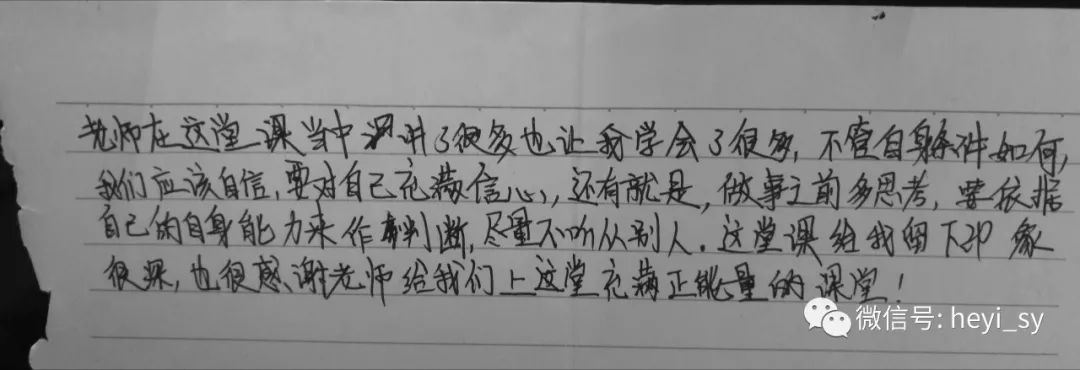 老师在这堂课当中讲了很多也让我学会了很多，不管自身条件如何，
我们应该自信，要对自己充满信心，还有就是，做事之前多思考，要依据
自己的自身能力来作判断，尽量不听从别人。这堂课给我留下印象
很深，也很感谢老师给我们上这堂充满正能量的课堂！
微信号: heyi_sy